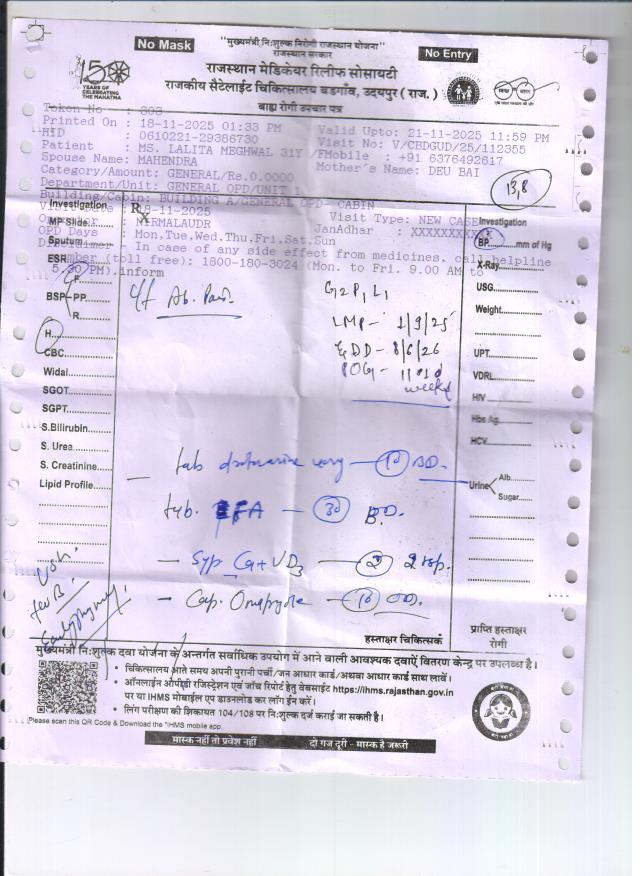 No Mask
"मुख्यमंत्री निःशुल्क निरोगी राजस्थान योजना"
राजस्थान सरकार
No Entry
150 YEARS OF CELEBRATING THE MAHATMA
राजस्थान मेडिकेयर रिलीफ सोसायटी
राजकीय सैटेलाईट चिकित्सालय बडगाँव, उदयपुर ( राज. )
बाह्य रोगी उपचार पत्र
Token No : 303
Printed On : 18-11-2025 01:33 PM Valid Upto: 21-11-2025 11:59 PM
HID : 0610221-29386730 Visit No: V/CBDGUD/25/112355
Patient : MS. LALITA MEGHWAL 31Y /F Mobile : +91 6376492617
Spouse Name: MAHENDRA Mother's Name: DEU BAI
Category/Amount: GENERAL/Rs.0.0000
Department/Unit: GENERAL OPD/UNIT 1
13.8
Building/Cabin: BUILDING A/GENERAL OPD- CABIN
18-11-2025 Visit Type: NEW CASE
NIRMALAUDR JanAadhar : XXXXXXXXX
OPD Days : Mon,Tue,Wed,Thu,Fri,Sat,Sun
Disclaimer - In case of any side effect from medicines, call helpline
number (toll free): 1800-180-3024 (Mon. to Fri. 9.00 AM to
5.30 PM).inform
Investigation
MP Slide
Sputum
ESR
BSP F
PP
R
H
CBC
Widal
SGOT
SGPT
S.Bilirubin
S. Urea
S. Creatinine
Lipid Profile
Rx
c/f Ab. Pain
G2P1L1
LMP - 1/9/25
EDD - 8/6/26
POG - 11
weeks
tab drotaverine 10 BD.
tab. IFA - 30 B.D.
- Syp Ca + VD3 - 2 2 tsp.
- Cap. Omeprazole - 10 OD.
USG
for
Investigation
BP mm of Hg
X-Ray
USG
Weight
UPT
VDRL
HIV
Hbs Ag
HCV
Urine Alb.
Sugar
हस्ताक्षर चिकित्सक
प्राप्ति हस्ताक्षर
रोगी
मुख्यमंत्री निःशुल्क दवा योजना के अन्तर्गत सर्वाधिक उपयोग में आने वाली आवश्यक दवाऐं वितरण केन्द्र पर उपलब्ध है।
• चिकित्सालय आते समय अपनी पुरानी पर्ची / जन आधार कार्ड / अथवा आधार कार्ड साथ लावें।
• ऑनलाईन ओपीडी रजिस्ट्रेशन एवं जाँच रिपोर्ट हेतु वेबसाईट https://ihms.rajasthan.gov.in
पर या IHMS मोबाईल एप डाउनलोड कर लॉग ईन करें।
• लिंग परीक्षण की शिकायत 104/108 पर निःशुल्क दर्ज कराई जा सकती है।
Please scan this QR Code & Download the "IHMS mobile app.
मास्क नहीं तो प्रवेश नहीं दो गज दूरी - मास्क है जरूरी